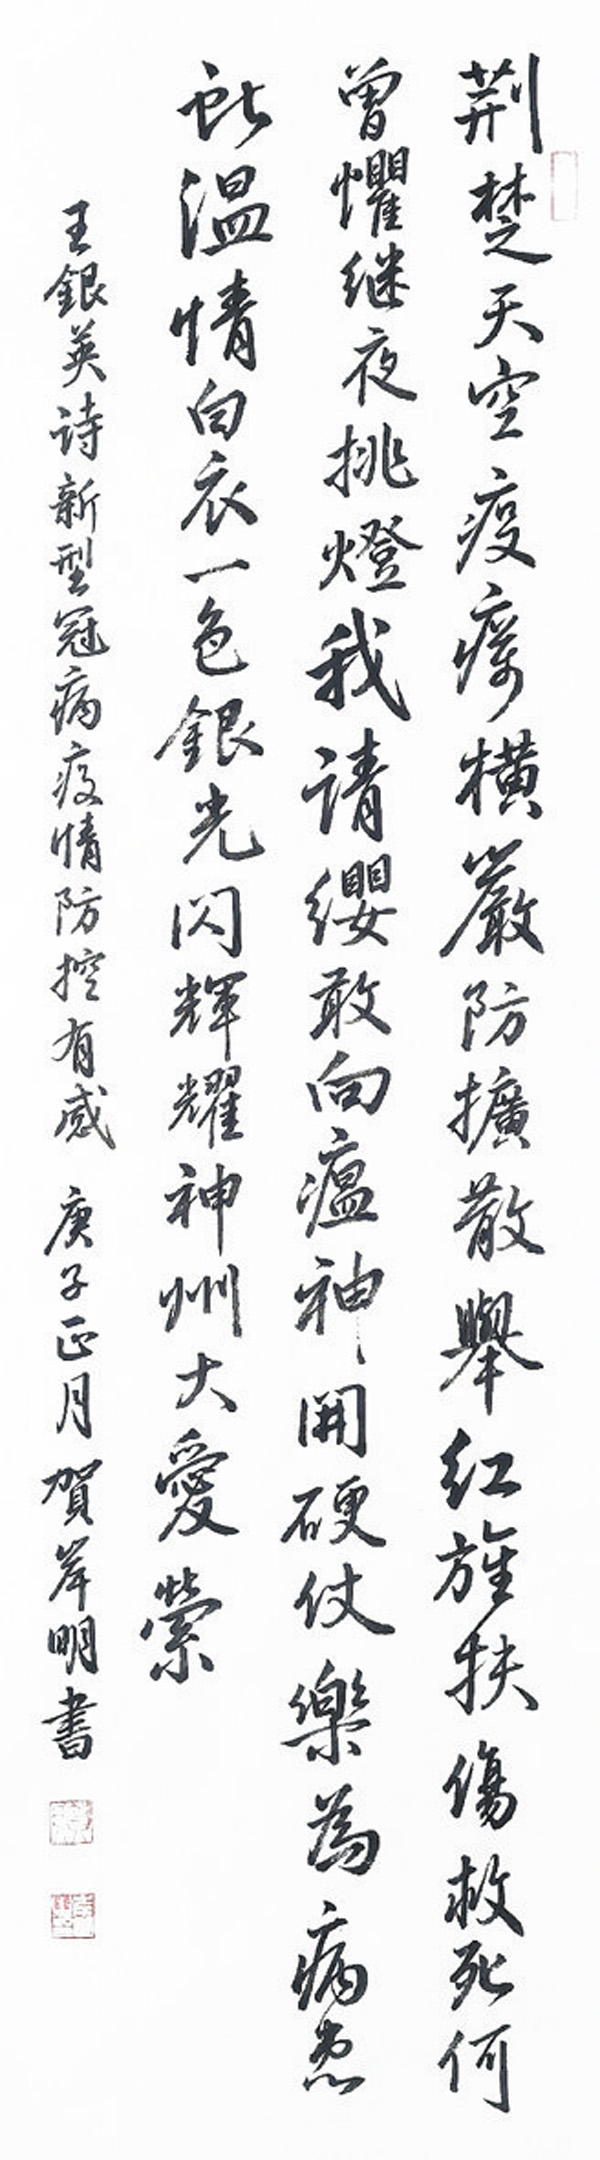 荆楚天空疫癘横嚴防擴散舉红旌扶傷救死何
曾懼继夜挑燈我请缨敢向瘟神開硬仗樂為病患
献温情白衣一色銀光閃輝耀神州大愛縈
王銀英诗新型冠病疫情防控有感 庚子正月賀岸明書